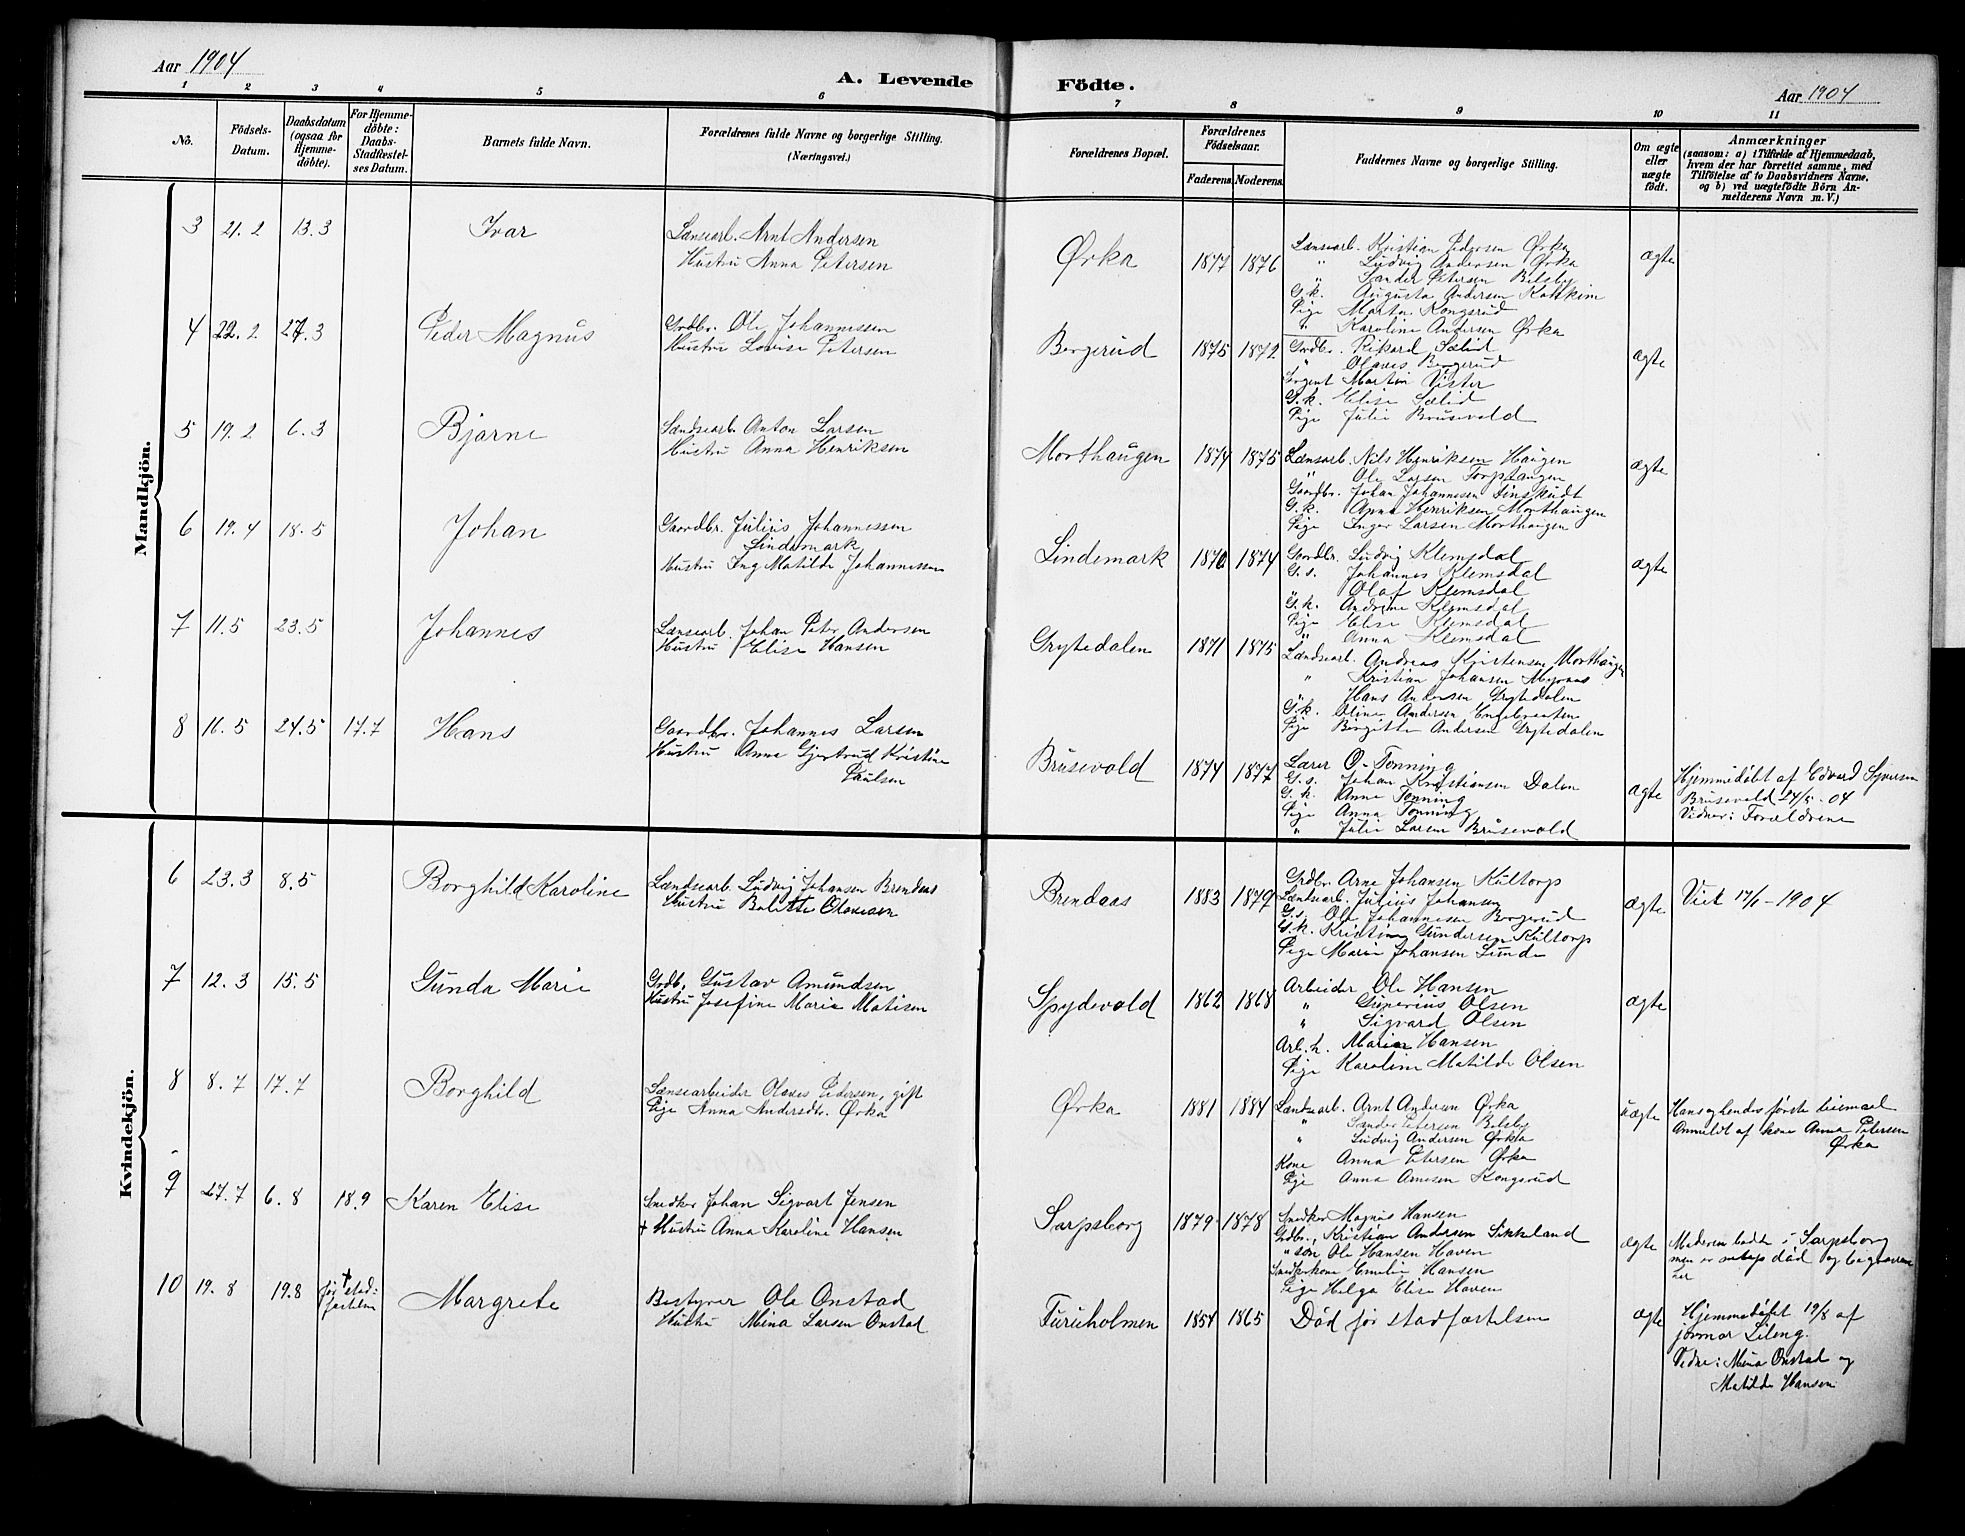 Aar 1904
A. Levende Födte.
Aar 1904
1 2 3 4 5 6 7 8 9 10 11
No.
Födsels-Datum.
Daabsdatum (ogsaa for Hjemmedöbte).
For Hjemmedöbte: Daabs-Stadfæstelses Datum.
Barnets fulde Navn.
Forældrenes fulde Navne og borgerlige Stilling.
(Næringsvei.)
Forældrenes Bopæl.
Forældrenes Födselsaar.
Faderens. Moderens.
Faddernes Navne og borgerlige Stilling.
Om ægte eller uægte födt.
Anmærkninger
(saasom: a) i Tilfælde af Hjemmedaab,
hvem der har forrettet samme, med
Tilföielse af to Daabsvidners Navne,
og b) ved uægtefödte Börn An-
melderens Navn m. V.)
Mandkjön.
3 21.2 13.3 Ivar
Lænsearb. Arnt Andersen
Hustru Anna Petersen
Ørka 1877 1876
Lænsearb. Kristian Pedersen Ørka
" Ludvig Andersen Ørka
" Sander Petersen Bilsby
G.k. Augusta Andersen
Pige Marta Kongsrud
" Karoline Andersen Ørka
ægte
4 22.2 27.3 Peder Magnus
Grdbr. Ole Johannessen
Hustru Lovise Petersen
Bergerud 1875 1872
Grdbr. Rikard Sælid
" Olaves Bergerud
Sergent Martin Vister
G.k. Elise Sælid
Pige Julie Brusevold
ægte
5 19.2 6.3 Bjarne
Lændsearb. Anton Larsen
Hustru Anna Henriksen
Morthaugen 1874 1875
Lænsearb. Nils Henriksen Haugen
" Ole Larsen Torptangen
Gaardbr. Johan Johannesen
G.k. Anna Henriksen Morthaugen
Pige Inger Larsen Morthaugen
ægte
6 19.4 18.5 Johan
Gaardbr. Julius Johannessen
Lindemark
Hustru Ing Matilde Johannessen
Lindemark 1870 1874
Gaardbr. Ludvig Klemsdal
G.s. Johannes Klemsdal
" Olaf Klemsdal
G.k. Andrine Klemsdal
Pige Elise Klemsdal
" Anna Klemsdal
ægte
7 11.5 23.5 Johannes
Lænsearb. Johan Peter Andersen
Hustru Elise Hansen
Grytedalen 1871 1875
Lændsearb. Andreas Kristensen Morthaugen
" Kristian Johansen Myrnas
" Hans Andersen Grytedalen
G.k. Oline Andersen Engebraaten
Pige Birgitte Andersen Grytedalen
8 16.5 24.5 17.7 Hans
Gaardbr. Johannes Larsen
Hustru Anne Gjertrud Kristine
Paulsen
Brusevold 1874 1877
Lærer O. Tonning
G.s. Johan Kristiansen Dalen
G.k. Anne Tonning
Pige Anna Tonning
" Julie Larsen Brusevold
ægte
Hjemmedøbt af Edvard Syversen
Brusevold 24/5-04
Vidner: Forældrene
Kvindekjön.
6 23.3 8.5 Borghild Karoline
Lændsearb. Ludvig Johansen Brendaas
Hustru Bolette Olavesen
Brendaas 1883 1879
Grdbr. Arne Johansen Kultorp
Lændsearb. Julius Johansen
G.s. Ole Johannesen Bergerud
G.k. Kristine Gundersen Kultorp
Pige Marie Johansen Lunde
ægte
Viet 17/1-1904
7 12.3 15.5 Gunda Marie
Grdb. Gustav Amundsen
Hustru Josefine Marie Matisen
Spydevold 1862 1868
Arbeider Ole Hansen
" Gunerius Olsen
" Sigvard Olsen
Arb.h. Maria Hansen
Pige Karoline Matilde Olsen
ægte
8 8.7 17.7 Borghild
Lænsearbeider Olaves Pedersen, gift
Pige Anna Andersdtr. Ørka
Ørka 1881 1884
Lændsearb. Arnt Andersen Ørka
" Sander Petersen Bilsby
" Ludvig Andersen Ørka
Kone Anna Petersen Ørka
Pige Anna Arnesen Kongsrud
uægte
Hans og hendes første leiemaal
Anmeldt af kone Anna Petersen
Ørka
9 27.7 6.8 18.9 Karen Elise
Snedker Johan Sigvart Jensen
+ Hustru Anna Karoline Hansen
Sarpsborg 1879 1878
Snedker Magnus Hansen
Grdbr. Kristian Andersen Sikkeland
" søn Ole Hansen Haven
Snedkerkone Emilie Hansen
Pige Helga Elise Haven
ægte
Moderen bodde i Sarpsborg
men er netop død og begraven
her
10 19.8 19.8 + før stad-
fæstelsen
Margrete
Bestyrer Ole Onstad
Hustru Mina Larsen Onstad
Furuholmen 1854 1865
Død før stadfæstelsen
ægte
Hjemmedøbt 19/8 af
jormor Lileng.
Vidne: Mina Onstad og
Matilde Hansen